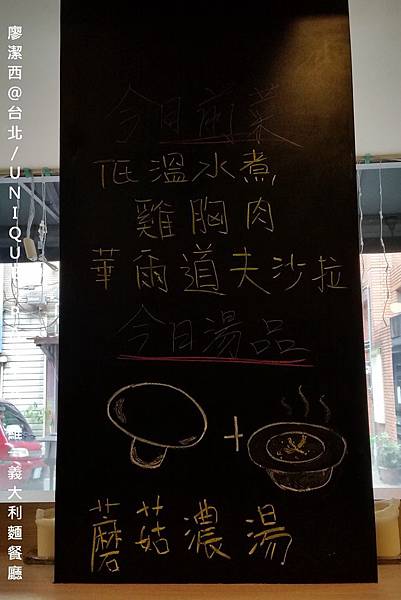 今日前菜
低溫水煮
雞胸肉
華爾道夫沙拉
今日湯品
蘑菇濃湯
廖潔西@台北/UNIQU
義大利麵餐廳